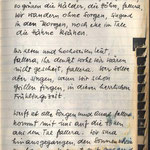 in grünen die Wälder, die Höh'n, fallera,
wir wandern ohne Sorgen, singend
in den Morgen, noch ehe im Tale
die Hähne krähen.
Ihr alten und hochweisen Leut,
fallera, ihr denkt wohl wir wären
nicht gescheit, fallera. Wer sollte
aber singen, wenn wir schon
Grillen fingen, in dieser herrlichen
Frühlingszeit
Werft ab alle Sorgen und Qual, fallera
kommt mit uns auf die Höhen
aus dem Tal fallera. Wir sind
hinausgegangen, den Sonnenschein